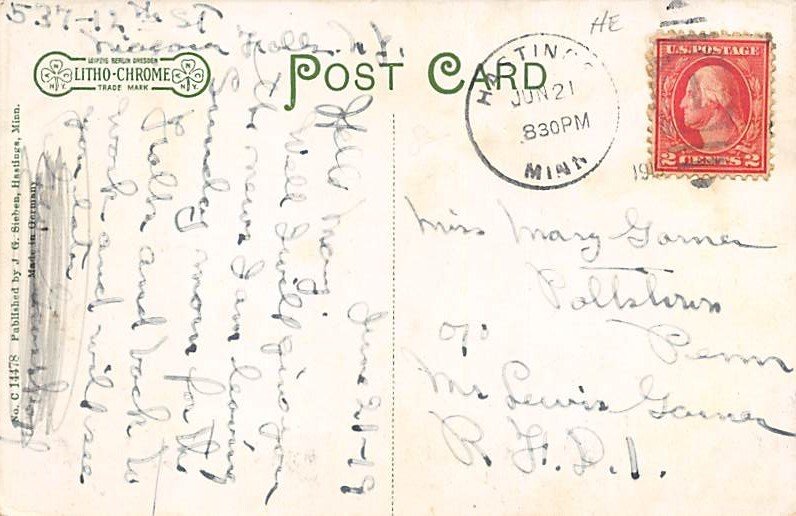 537-12th St
Niagara Falls N.Y.
LEIPZIG BERLIN DRESDEN
LITHO-CHROME
TRADE MARK
N.Y.
C
N
POST CARD
HE
HASTINGS
JUN 21
830PM
MINN
19
U.S. POSTAGE
2 CENTS 2
June 21-19
Hello Mary.
Will I will give you
the news I am leaving
Sunday morn for the
Falls and back to
work and will see
you later
Miss Mary Garner
Pottstown
Penn
c/o
Mr Lewis Garner
R. F. D. 1.
Made in Germany
No. C 14478 Published by J. G. Sieben, Hastings, Minn.